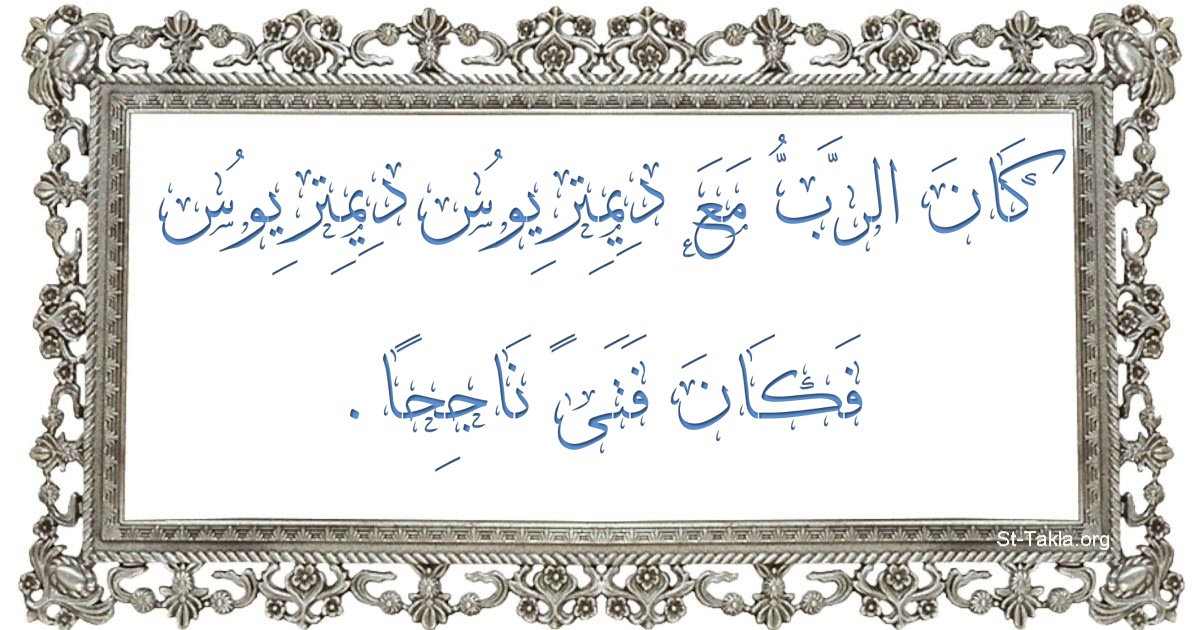 كَانَ الرَّبُّ مَعَ دِيمِترِيُوس دِيمِترِيُوس
فَكَانَ فَتَىً نَاجِحًا .
St-Takla.org